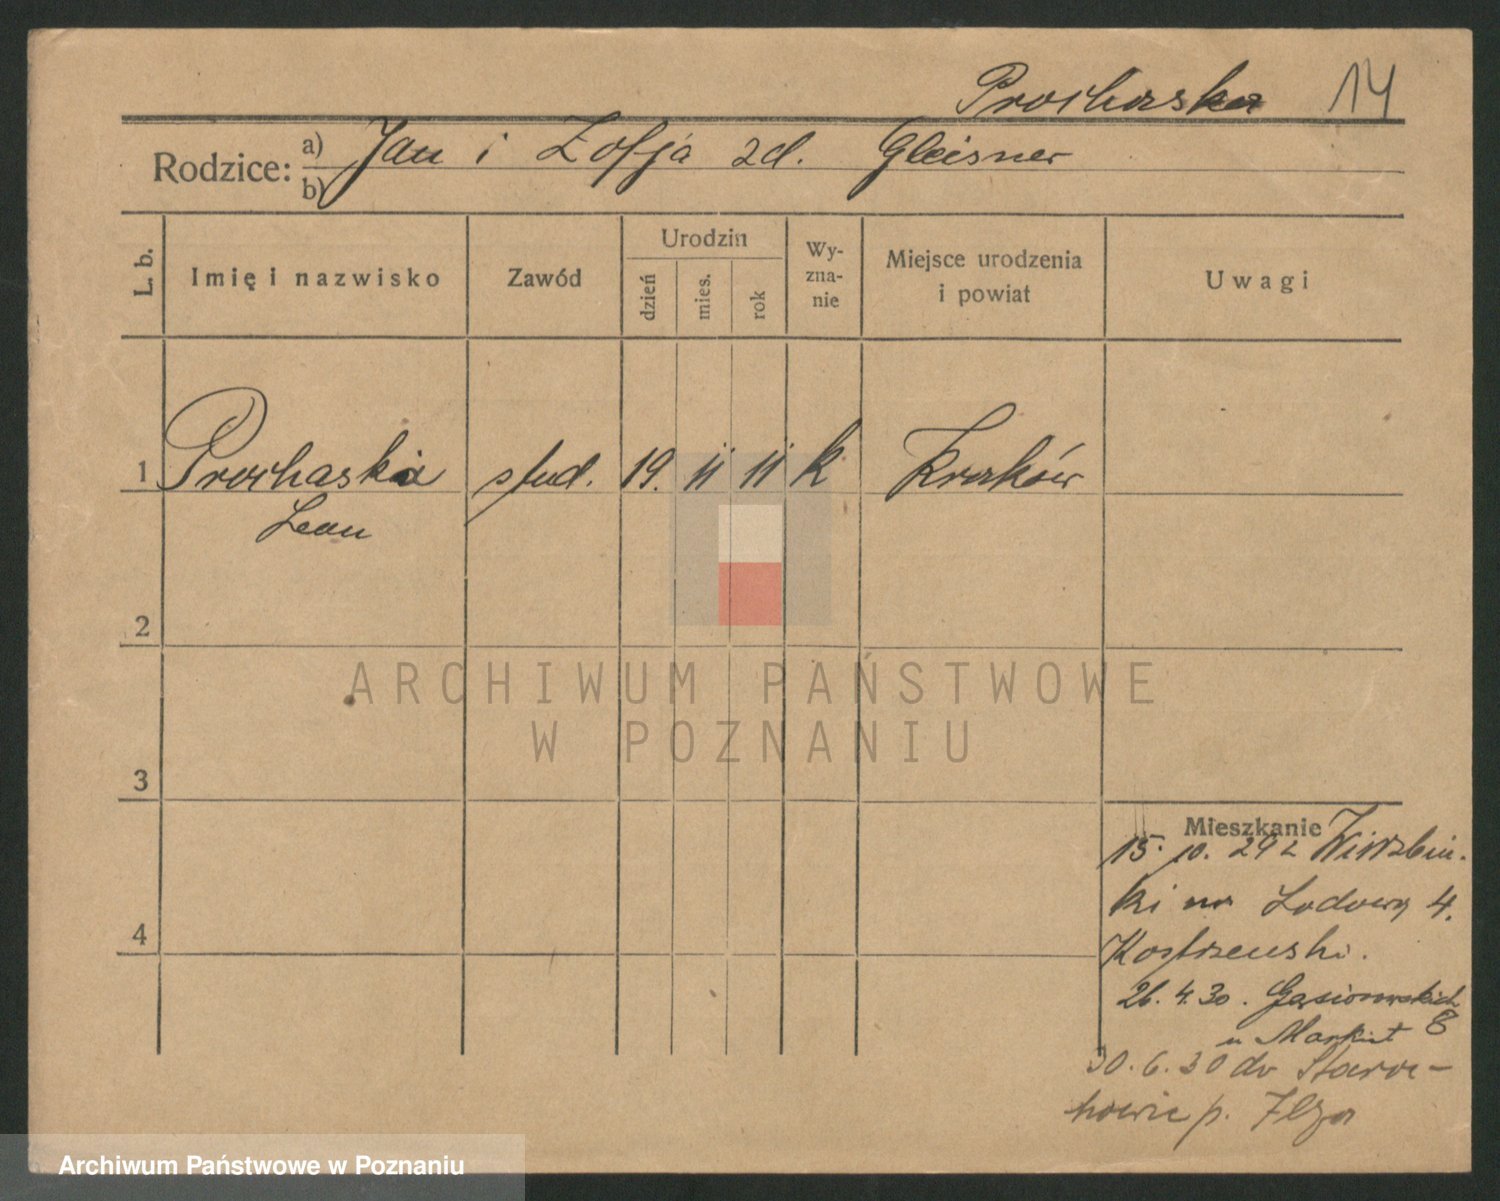 Prochaska 14
Rodzice: a) Jan i Zofja zd. Gleisner
b)
L. b. Imię i nazwisko Zawód Urodzin dzień mies. rok Wy-zna-nie Miejsce urodzenia i powiat Uwagi
1 Prochaska stud. 19. 11 11 k Kraków
Leon
2
3
4
Mieszkanie
15. 10. 29 z Wierzbin.
ki na Lodową 4.
Kostrzewski.
26. 4. 30. Gąsiorowskich 8
u Markiet
30. 6. 30 do Starac-
howic p. Ilża
ARCHIWUM PAŃSTWOWE
W POZNANIU
Archiwum Państwowe w Poznaniu